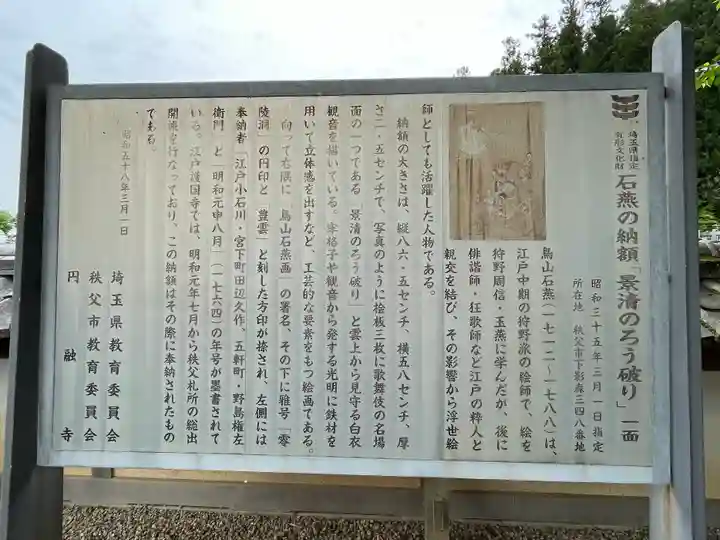 埼玉県指定
有形文化財
石燕の納額「景清のろう破り」一面
昭和三十五年三月一日指定
所在地 秩父市下影森三四八番地
鳥山石燕(一七一二~一七八八)は、
江戸中期の狩野派の絵師で、絵を
狩野周信・玉燕に学んだが、後に
俳諧師・狂歌師など江戸の粋人と
親交を結び、その影響から浮世絵
師としても活躍した人物である。
納額の大きさは、縦八六・五センチ、横五八センチ、厚
さ二・五センチで、写真のように桧板三枚に歌舞伎の名場
面の一つである「景清のろう破り」と雲上から見守る白衣
観音を描いている。牢格子や観音から発する光明に鉄材を
用いて立体感を出すなど、工芸的な要素をもつ絵画である。
向って右隅に「鳥山石燕画」の署名、その下に雅号「零
陵洞」の円印と「豊雲」と刻した方印が捺され、左側には
奉納者「江戸小石川・宮下町田辺久作、五軒町・野島権左
衛門」と「明和元申八月」(一七六四)の年号が墨書されて
いる。江戸護国寺では、明和元年七月から秩父札所の総出
開帳を行なっており、この納額はその際に奉納されたもの
である。
昭和五十八年三月一日
埼玉県教育委員会
秩父市教育委員会
円融寺